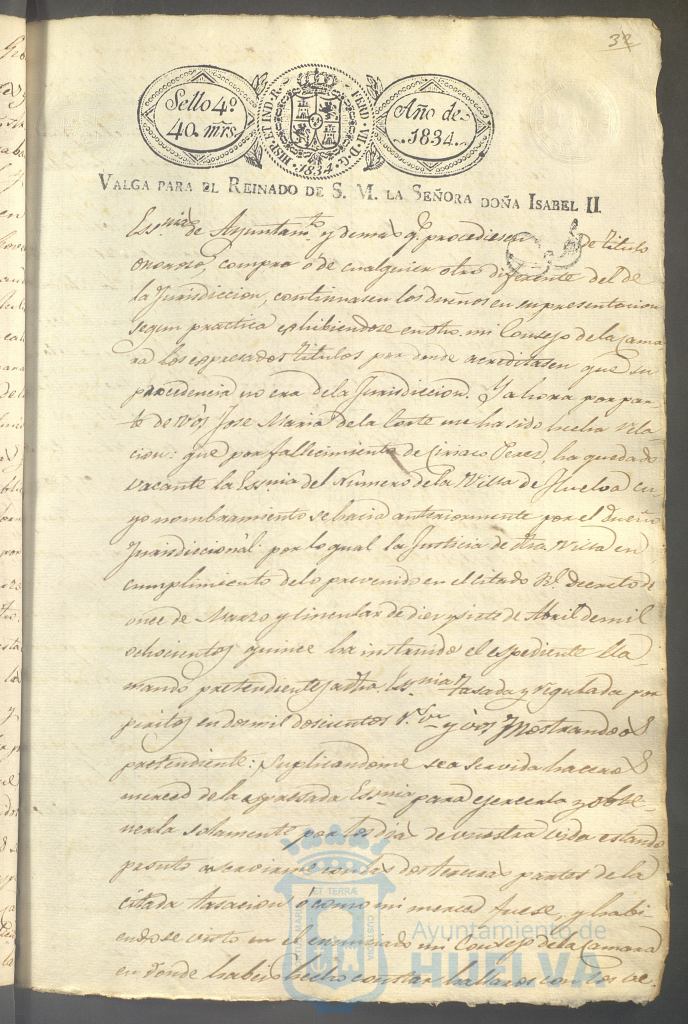 32
Sello 4º
40. mrs.
HISP. ET IND. R. FERD. VII. D. G.
1834
Año de
1834.
VALGA PARA EL REINADO DE S. M. LA SEÑORA DOÑA ISABEL II.
Essnias de Ayuntamto y demas qe procediesen de titulo
oneroso, compra ó de cualquier otro diferente del de
la Jurisdiccion, continuasen los dueños en su presentacion
segun practica exhibiendose en otro mi Consejo de la Cama
ra los espresados titulos por donde acreditasen que su
procedencia no era de la Jurisdiccion. Y ahora por par
te de Vos Jose Maria de la Corte me ha sido hecha rela
cion: que por fallecimiento de Ciriaco Perez, ha quedado
vacante la Essnia del Numero de la Villa de Huelva cu
yo nombramiento se hacia anteriormente por el dueño
Jurisdiccional: por lo qual la Justicia de dha Villa en
cumplimiento de lo prevenido en el citado Rl. Decreto de
once de Marzo y circular de diez y siete de Abril de mil
ochocientos quince ha instruido el espediente lla
mando pretendientes a dha Essnia tasada y regulada por
peritos en dos mil doscientos rs. vn y vos mostrandoos
pretendiente: Suplicandome sea servida haceros
merced de la espresada Essnia para ejercerla y obte
nerla solamente por los dias de vuestra vida estando
pronto a servirme con las dos terceras partes de la
citada tasacion o como mi merced fuese, y habi
endose visto en el enunciado mi Consejo de la Camara
en donde habeis hecho constar hallaros con los re
Ayuntamiento de
HUELVA